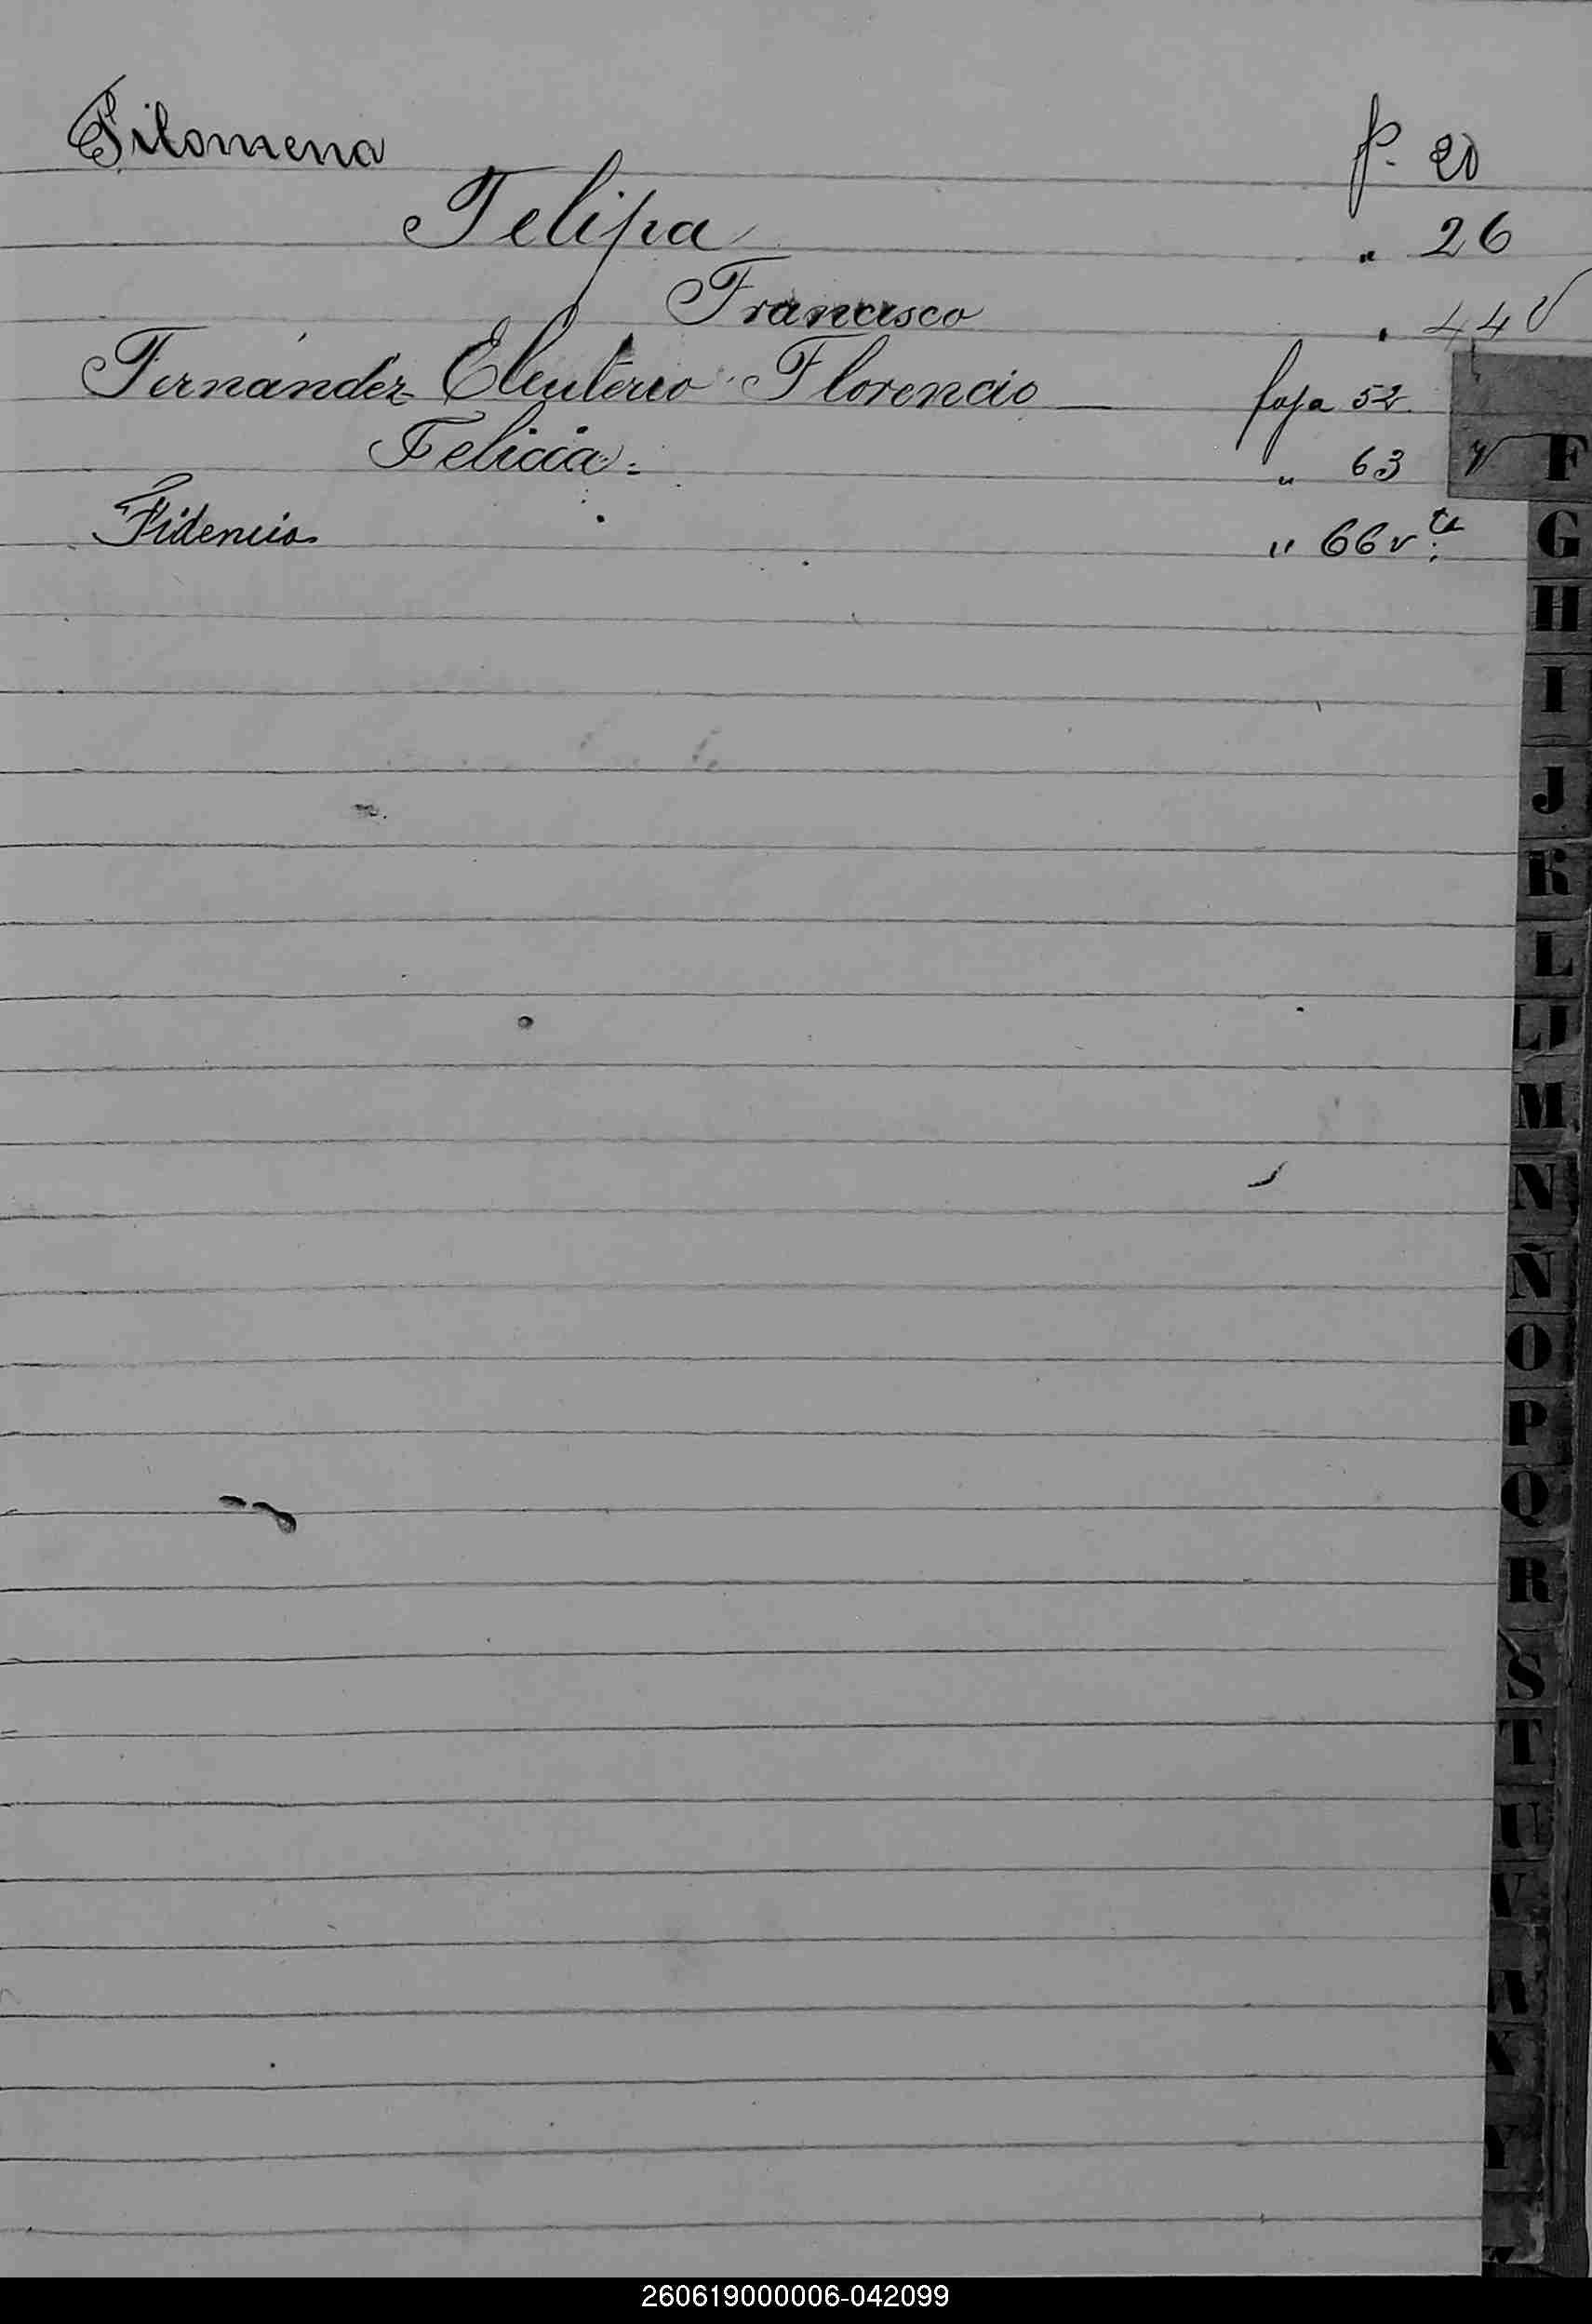 Filomena f. 20
Felipa " 26
Francisco " 44 v
Fernández Eleuterio Florencio — foja 52
Felicia = " 63 v
Fidencio " 66 vta
F
G
H
I
J
K
L
Ll
M
N
Ñ
O
P
Q
R
S
T
U
V
X
Y
260619000006-042099